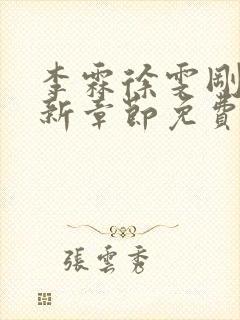 李霖徐雯剛
新章節免費
張雲秀